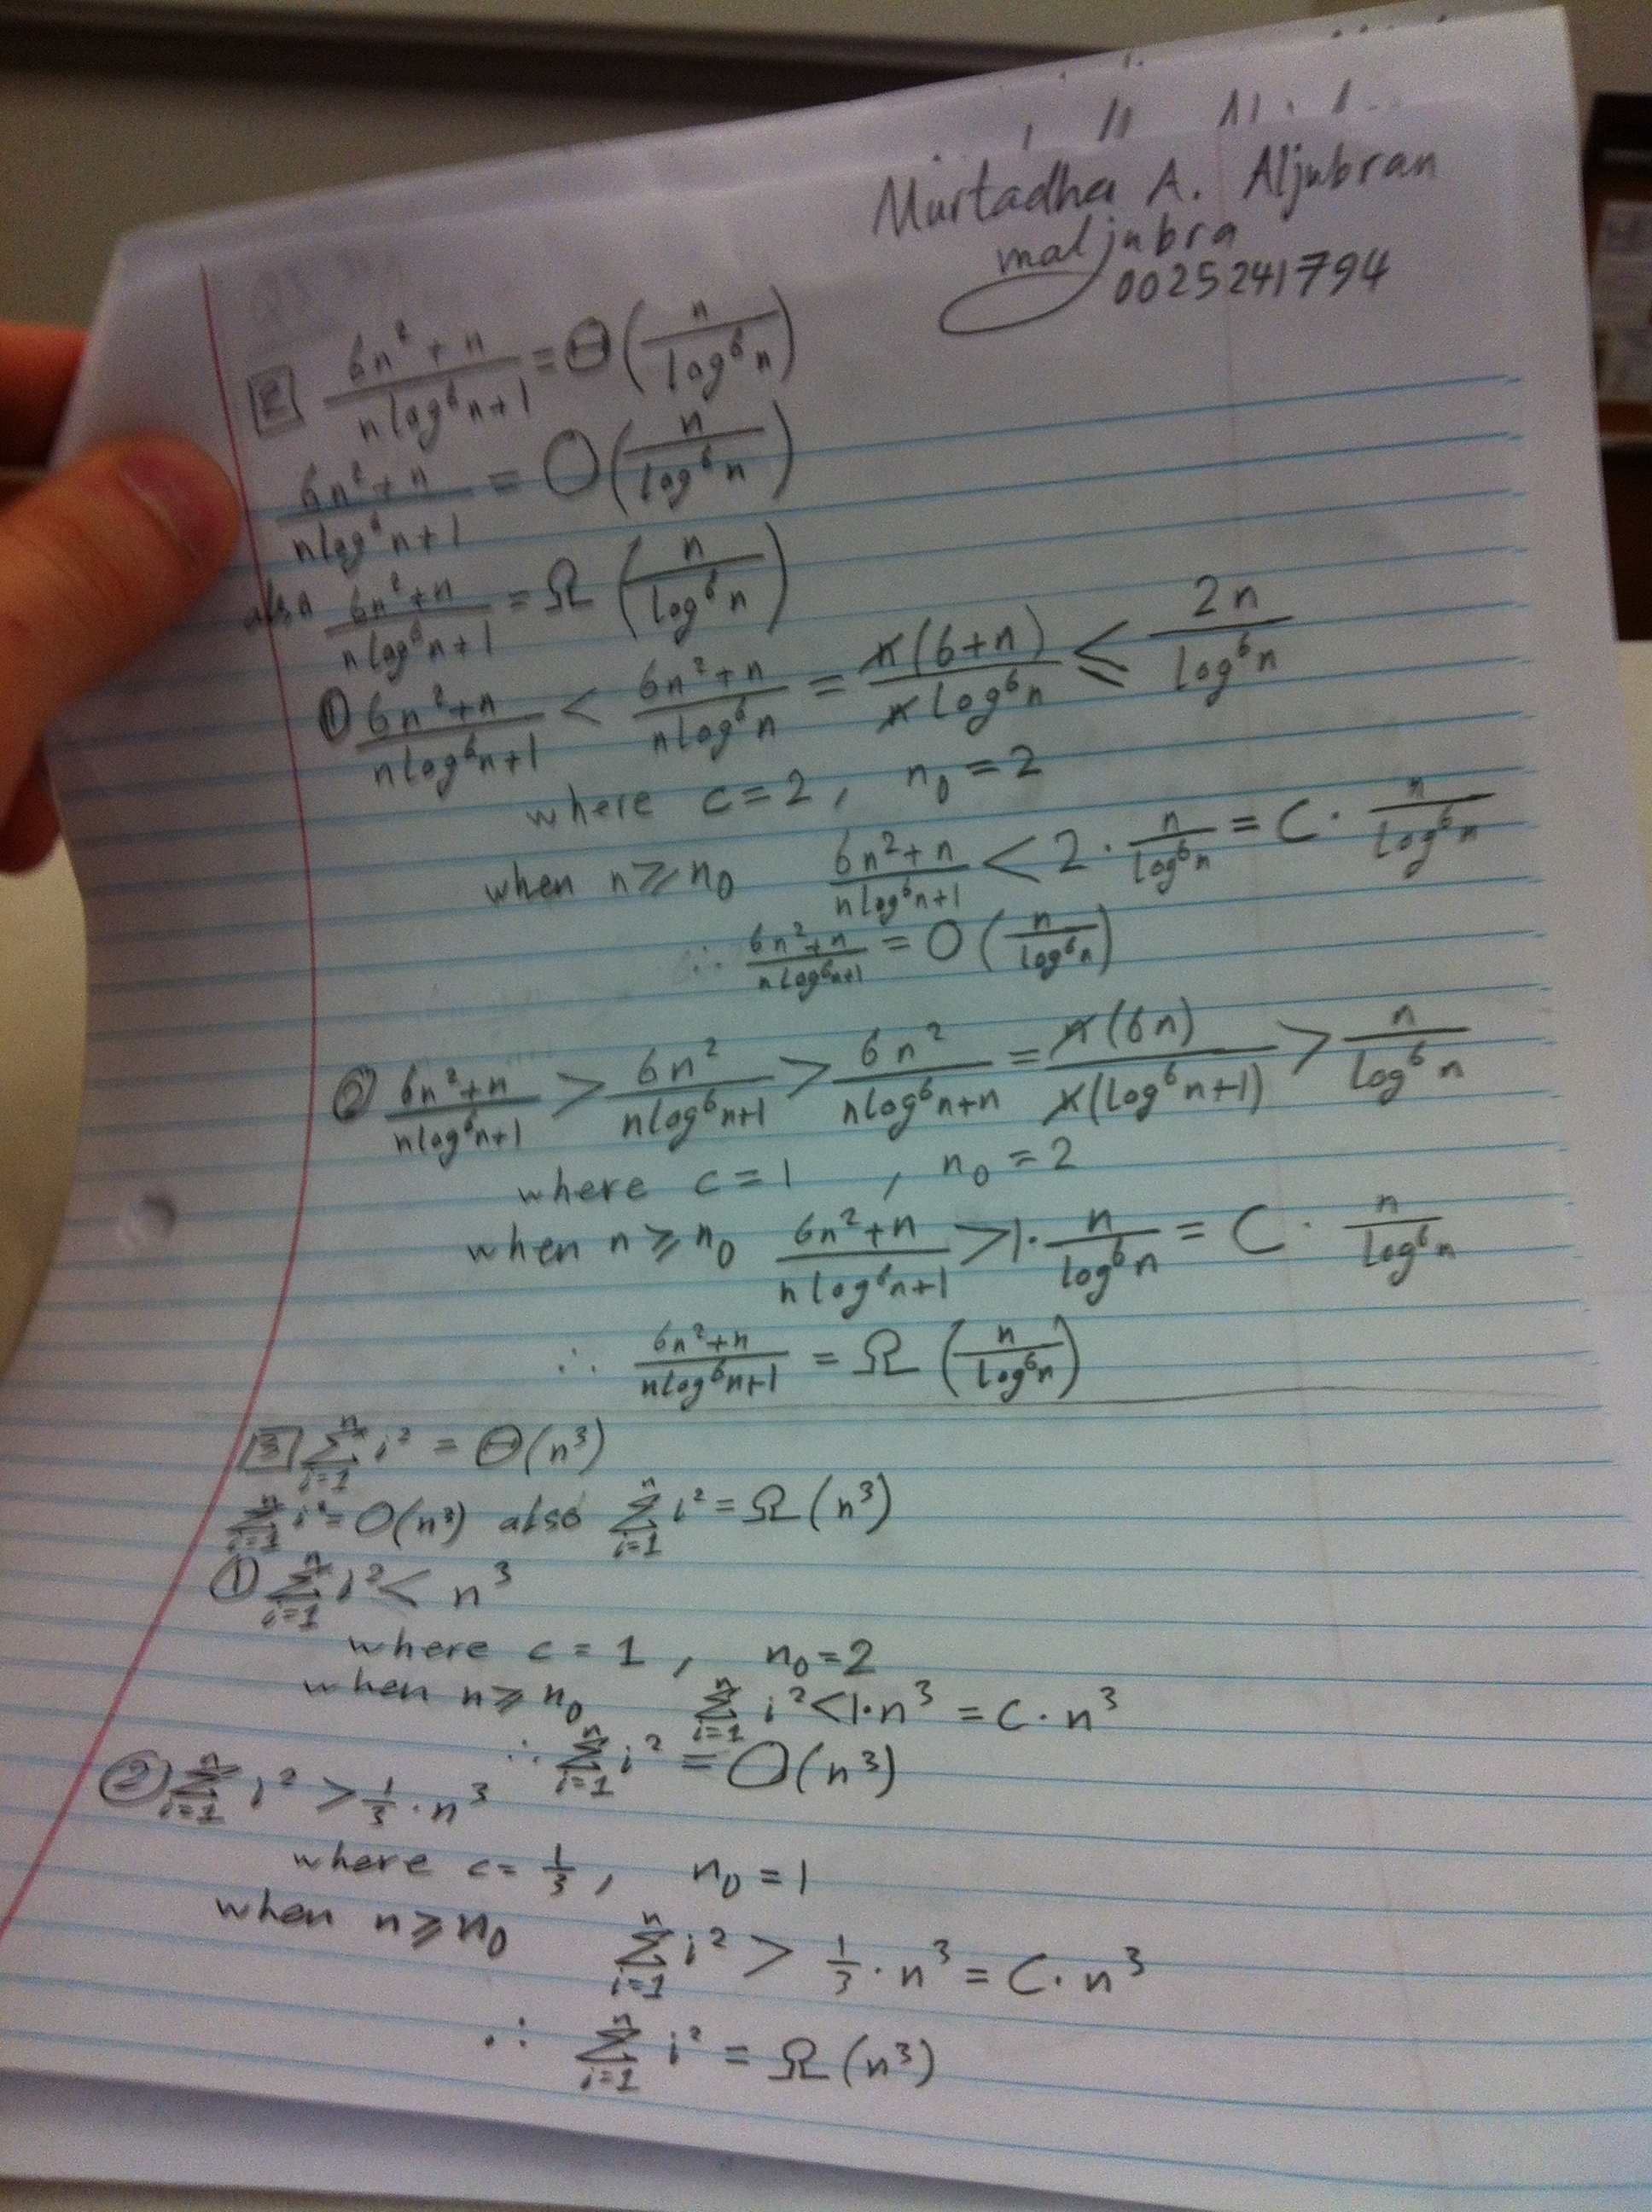 Murtadha A. Aljubran
maljubra
0025241794
[2] (6n² + n)/(n log⁶n+1) = Θ(n/(log⁶ n))
(6n²+n)/(n log⁶n+1) = O(n/(log⁶ n))
also (6n²+n)/(n log⁶n+1) = Ω (n/(log⁶ n))
① (6n²+n)/(n log⁶n+1) < (6n²+n)/(n log⁶n) = n(6+n)/(n log⁶n) ≤ 2n/(log⁶n)
where c=2, n₀=2
when n≥n₀ (6n²+n)/(n log⁶n+1) < 2·n/(log⁶n) = C·n/(log⁶n)
∴ (6n²+n)/(n log⁶n+1) = O(n/(log⁶n))
② (6n²+n)/(n log⁶n+1) > 6n²/(n log⁶n+1) > 6n²/(n log⁶n+n) = n(6n)/(n(log⁶n+1)) > n/(log⁶n)
where c=1, n₀=2
when n≥n₀ (6n²+n)/(n log⁶n+1) > 1·n/(log⁶n) = C·n/(log⁶n)
∴ (6n²+n)/(n log⁶n+1) = Ω (n/(log⁶n))
[3] ∑ⁿᵢ₌₁ i² = Θ(n³)
∑ⁿᵢ₌₁ i² = O(n³) also ∑ⁿᵢ₌₁ i² = Ω(n³)
① ∑ⁿᵢ₌₁ i² < n³
where c=1, n₀=2
when n≥n₀ ∑ⁿᵢ₌₁ i² < 1·n³ = C·n³
∴ ∑ⁿᵢ₌₁ i² = O(n³)
② ∑ⁿᵢ₌₁ i² > 1/3·n³
where c=1/3, n₀=1
when n≥n₀ ∑ⁿᵢ₌₁ i² > 1/3·n³ = C·n³
∴ ∑ⁿᵢ₌₁ i² = Ω(n³)